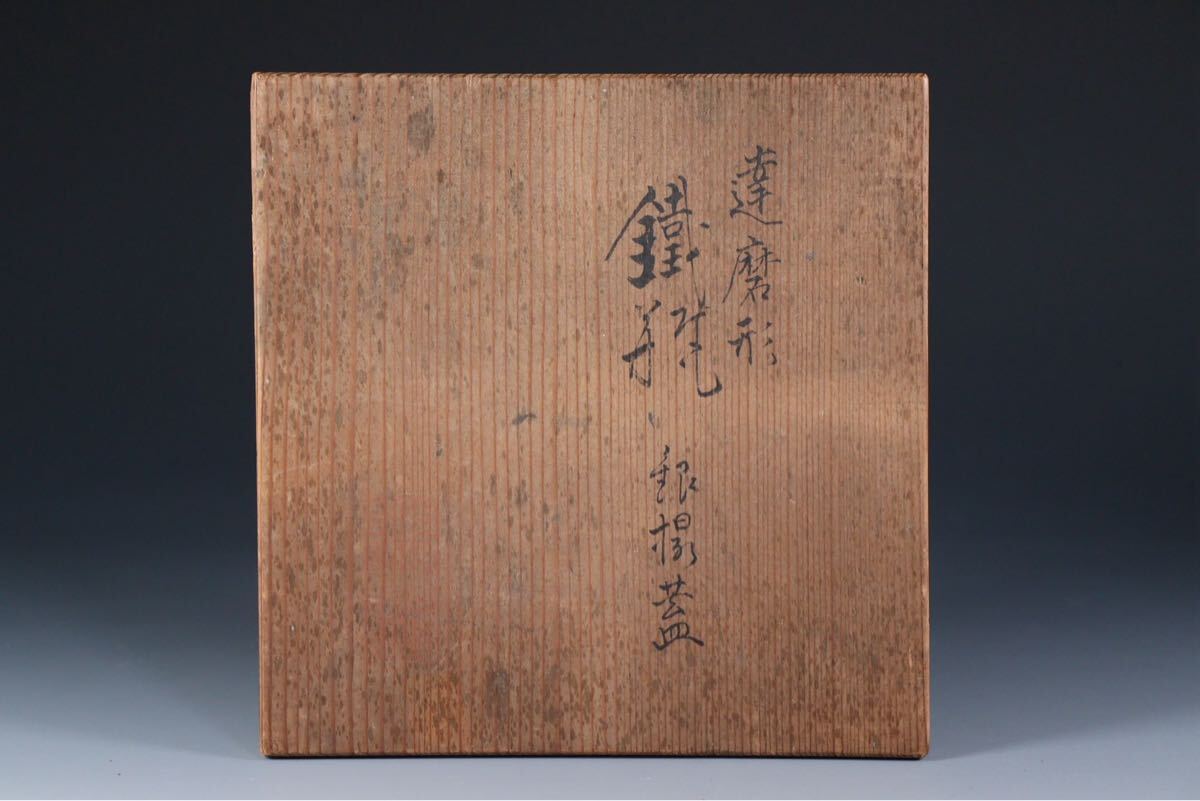 達磨形
鐵瓶 銀撮蓋